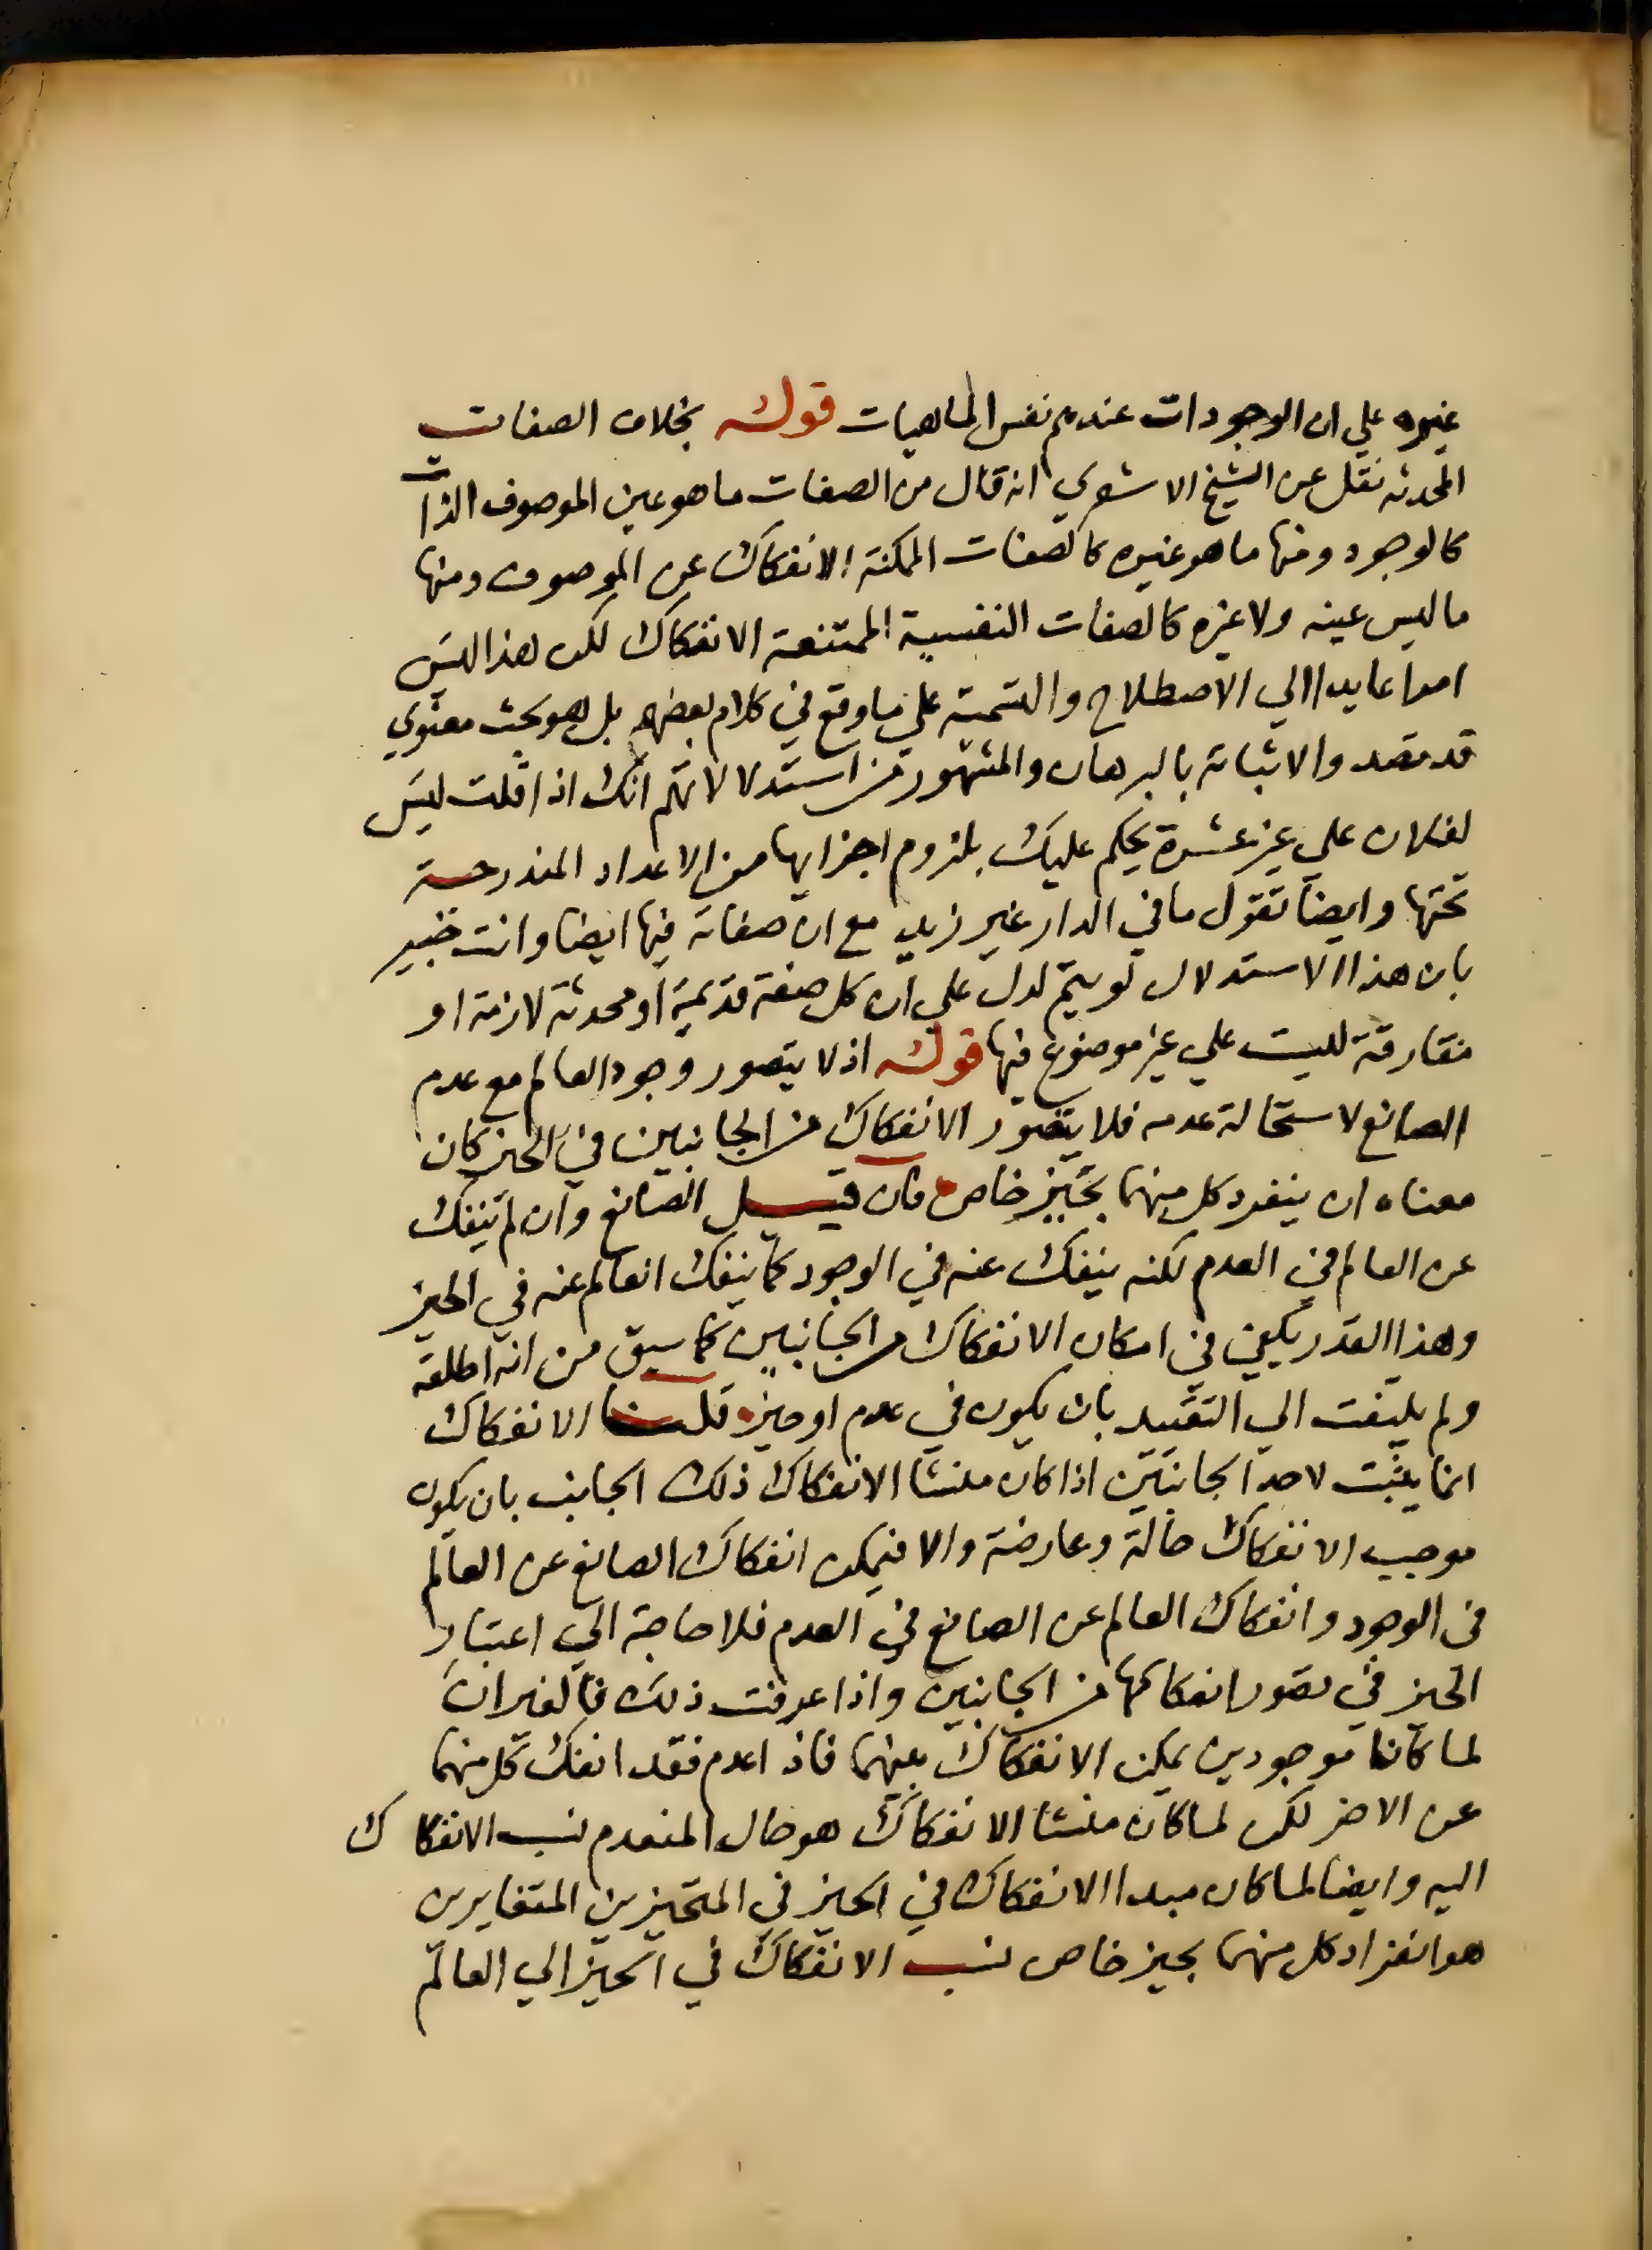 غيره علي ان الوجودات عندهم نفس الماهيات قوله بخلاف الصفات
المحدثه نقل عن الشيخ الاشعري انه قال من الصفات ما هو عين الموصوف الذات
كالوجود ومنها ما هو غيره كالصفات الممكنة الانفكاك عن الموصوف ومنها
ما ليس عينه ولا غيره كالصفات النفسية الممتنعة الانفكاك لكن هذا ليس
امرا عايدا الي الاصطلاح والتسمية علي ما وقع في كلام بعضهم بل هو بحث معنوي
قد قصد والاثباته بالبرهان والمشهور من استدلالاتهم انك اذا قلت ليس
لفلان علي غير عشرة يحكم عليك بلزوم اجزايها من الاعداد المندرجة
تحتها وايضا تقول ما في الدار غير زيد مع ان صفاته فيها ايضا وانت خبير
بان هذا الاستدلال لو يتم لدل علي ان كل صفة قديمة او محدثة لازمة او
مفارقة ليست علي غير موضوع فيها قوله اذ لا يتصور وجود العالم مع عدم
الصانع لاستحالة عدمه فلا يتصور الانفكاك من الجانبين في الحيز كان
معناه ان ينفرد كل منهما بحيز خاص فان قيل الصانع وان لم ينفك
عن العالم في العدم لكنه ينفك عنه في الوجود كما ينفك العالم عنه في الحيز
وهذا القدر يكفي في امكان الانفكاك من الجانبين كما سبق من انه اطلقه
ولم يلتفت الي التقييد بان يكون في عدم او حيز قلنا الانفكاك
انما يثبت لاحد الجانبين اذا كان منشا الانفكاك ذلك الجانب بان يكون
موجب الانفكاك حالة وعارضة والا فيمكن انفكاك الصانع عن العالم
في الوجود وانفكاك العالم عن الصانع في العدم فلا حاجة الي اعتبار
الحيز في تصور انفكاكهما من الجانبين واذا عرفت ذلك فالغيران
لما كانا موجودين يمكن الانفكاك بينهما فاذا عدم فقد انفك كل منهما
عن الاخر لكن لما كان منشا الانفكاك هو حال المنعدم نسب الانفكاك
اليه وايضا لما كان مبدا الانفكاك في الحيز في المتحيزين المتغايرين
هو انفراد كل منهما بحيز خاص نسب الانفكاك في الحيز الي العالم